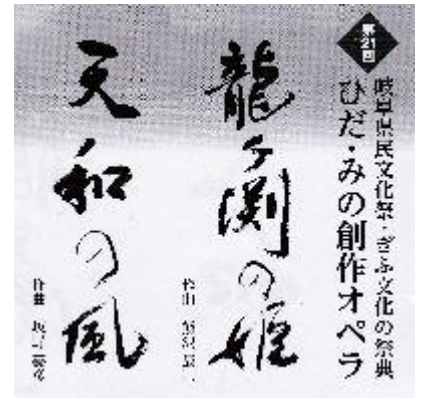 第21回
岐阜県民文化祭・ぎふ文化の祭典
ひだ・みの創作オペラ
龍ヶ渕の姫
作曲
天和の風
作曲